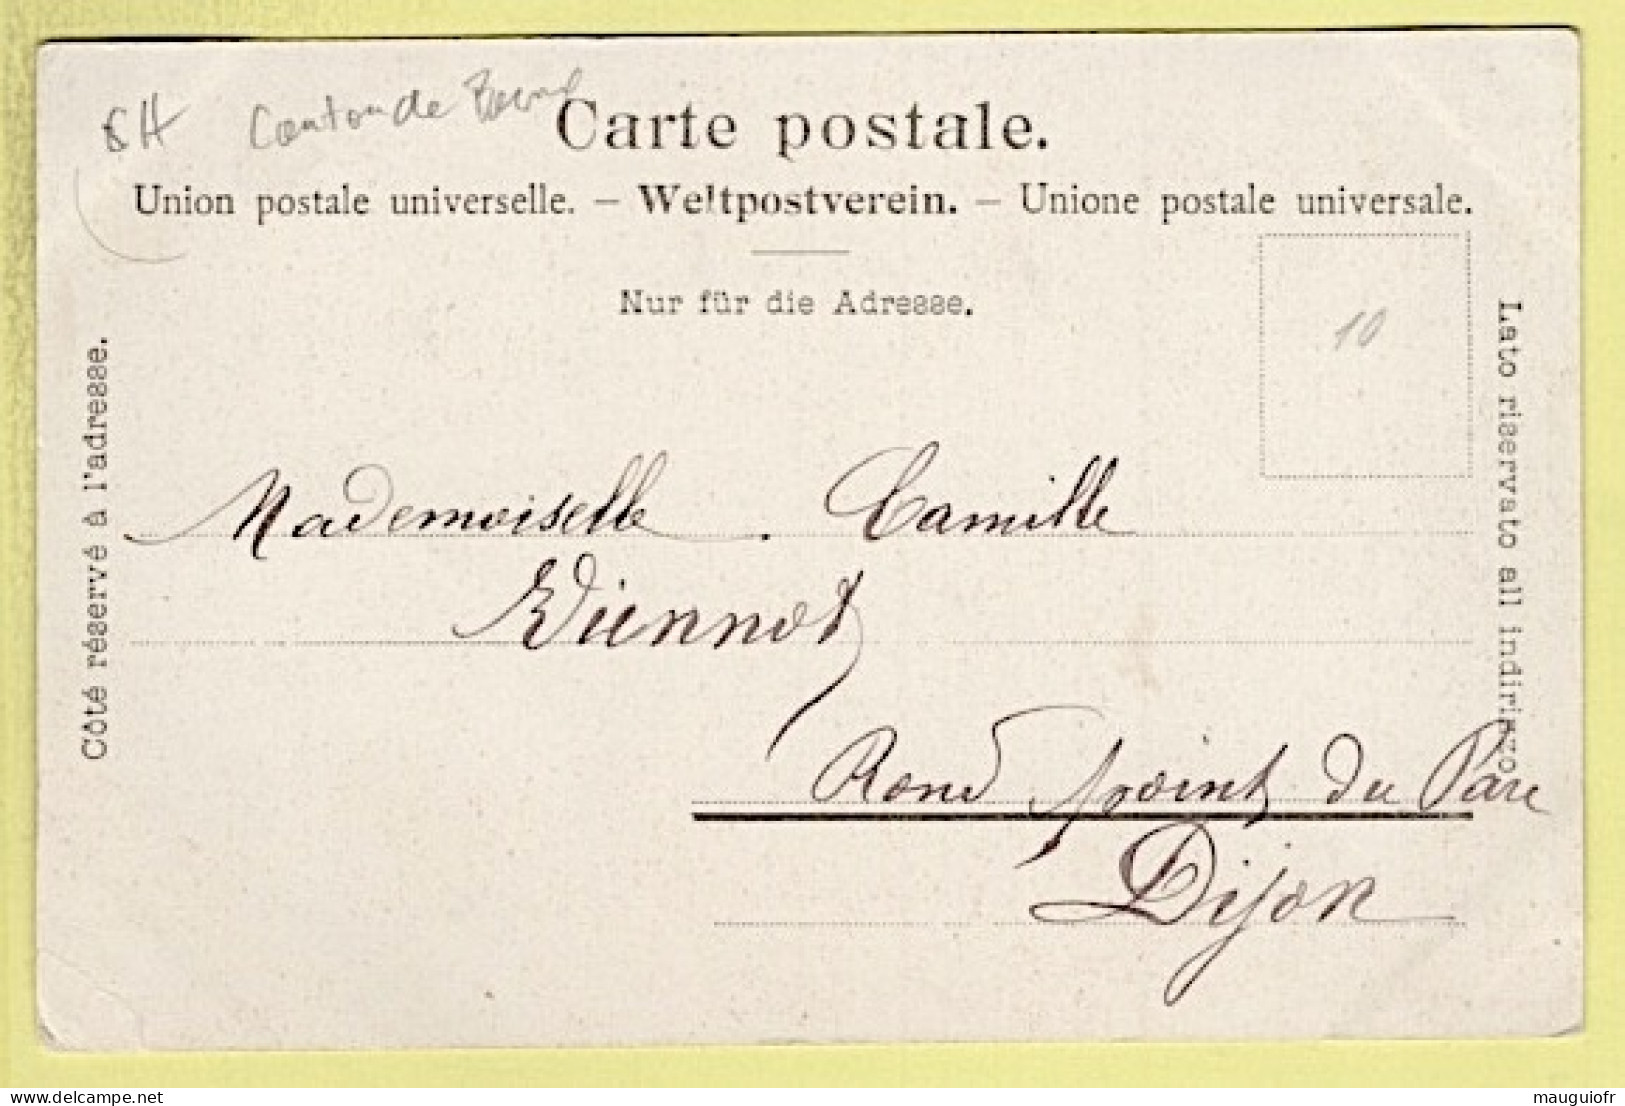 Canton de
Carte postale.
Union postale universelle. – Weltpostverein. – Unione postale universale.
Nur für die Adresse.
Côté réservé à l'adresse.
Lato riservato all indirizzo
10
Mademoiselle. Camille
Viennot
Rond point du Parc
Dijon
delcampe.net
mauguiofr